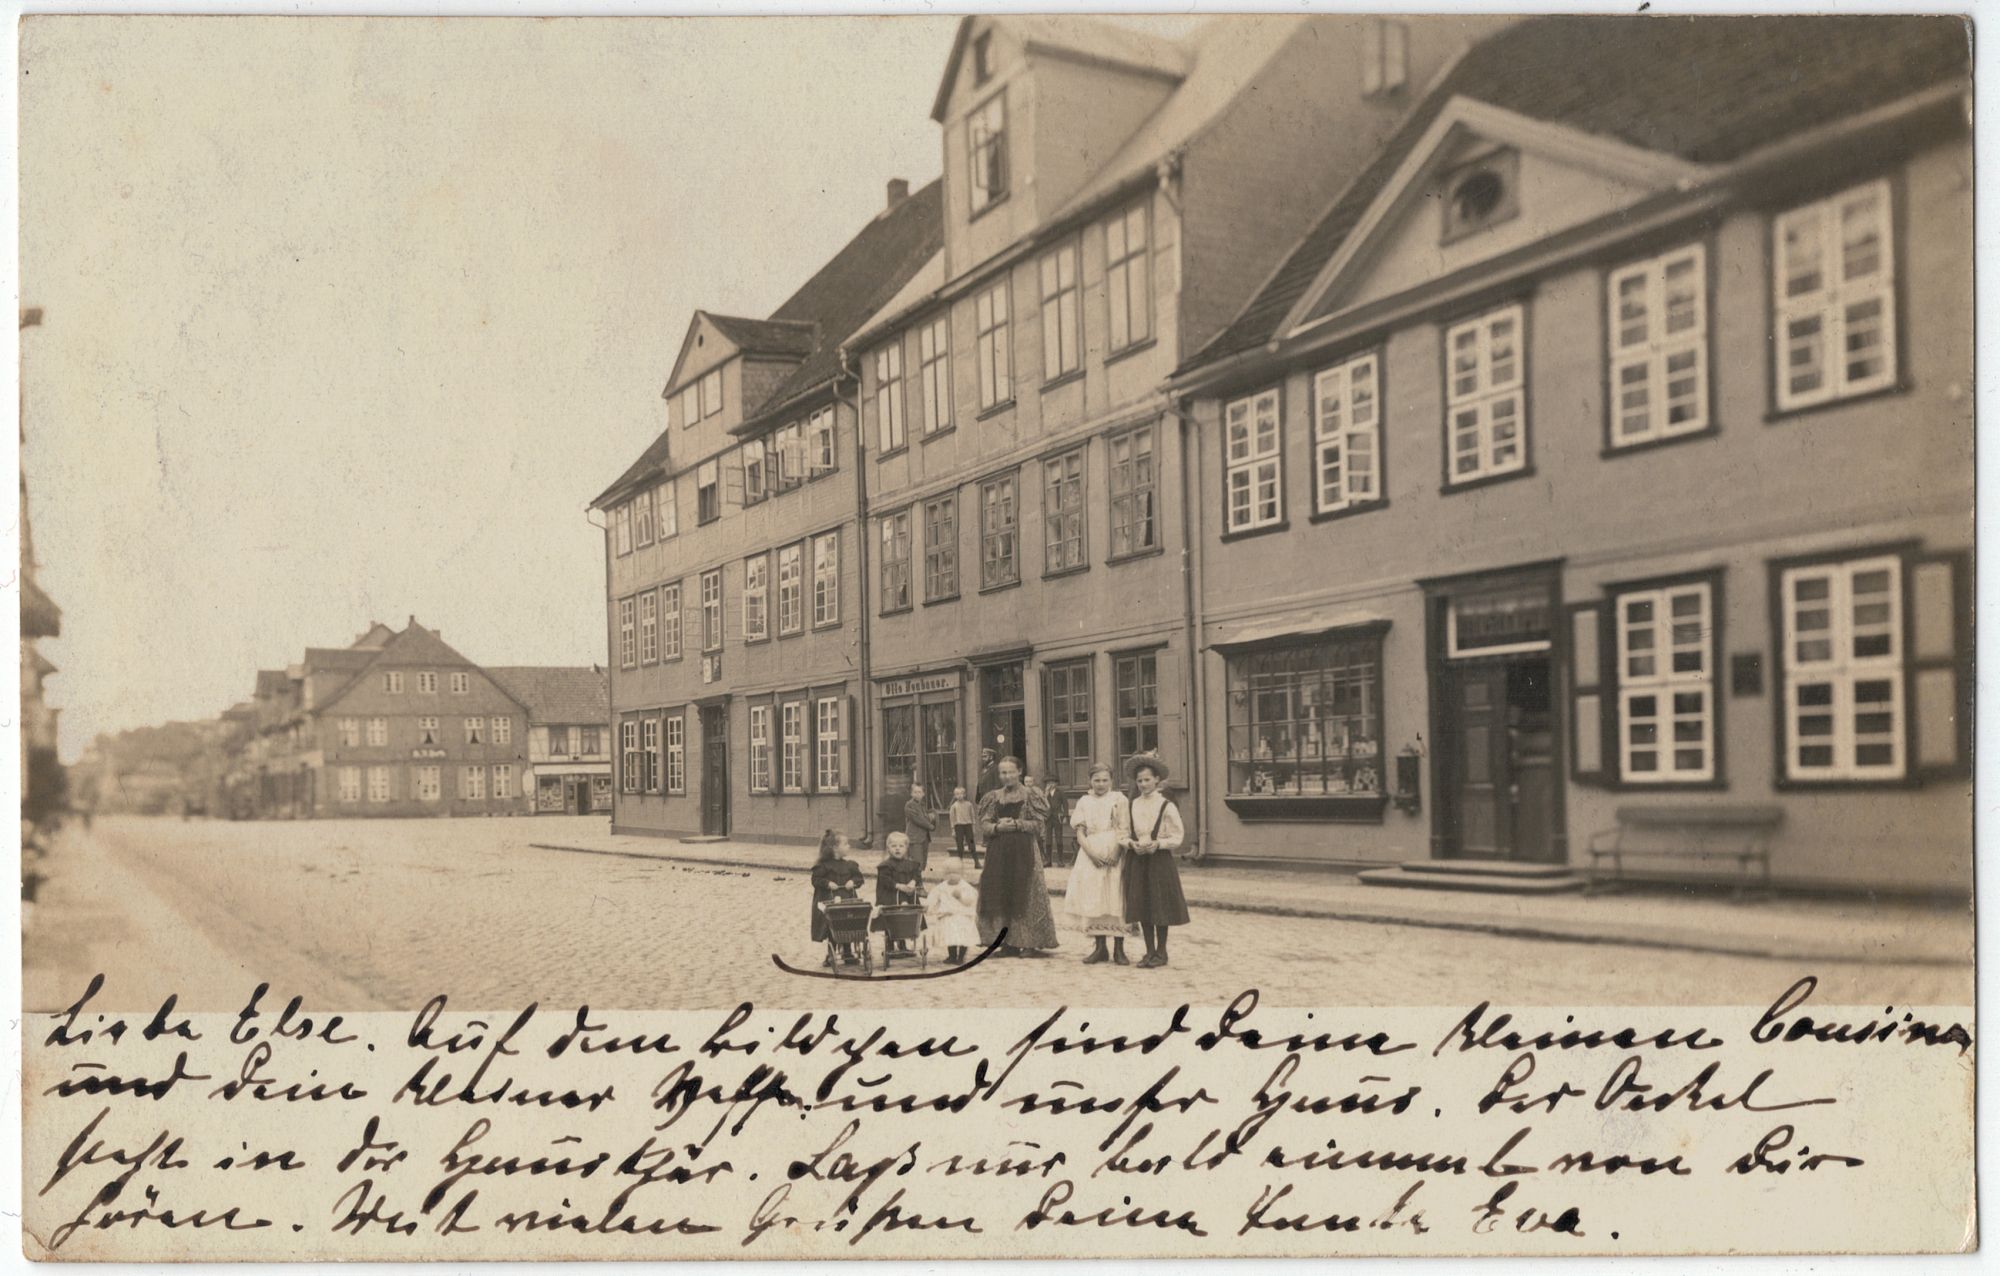 Otto Neubauer.
Liebe Else. Auf dem Bildchen sind Deine kleinen Cousinen
und Dein kleiner Neffe. und unser Haus. Der Onkel
steht in der Haustür. Laß nur bald einmal von Dir
hören. Mit vielen Grüßen Deine Tante Eva.